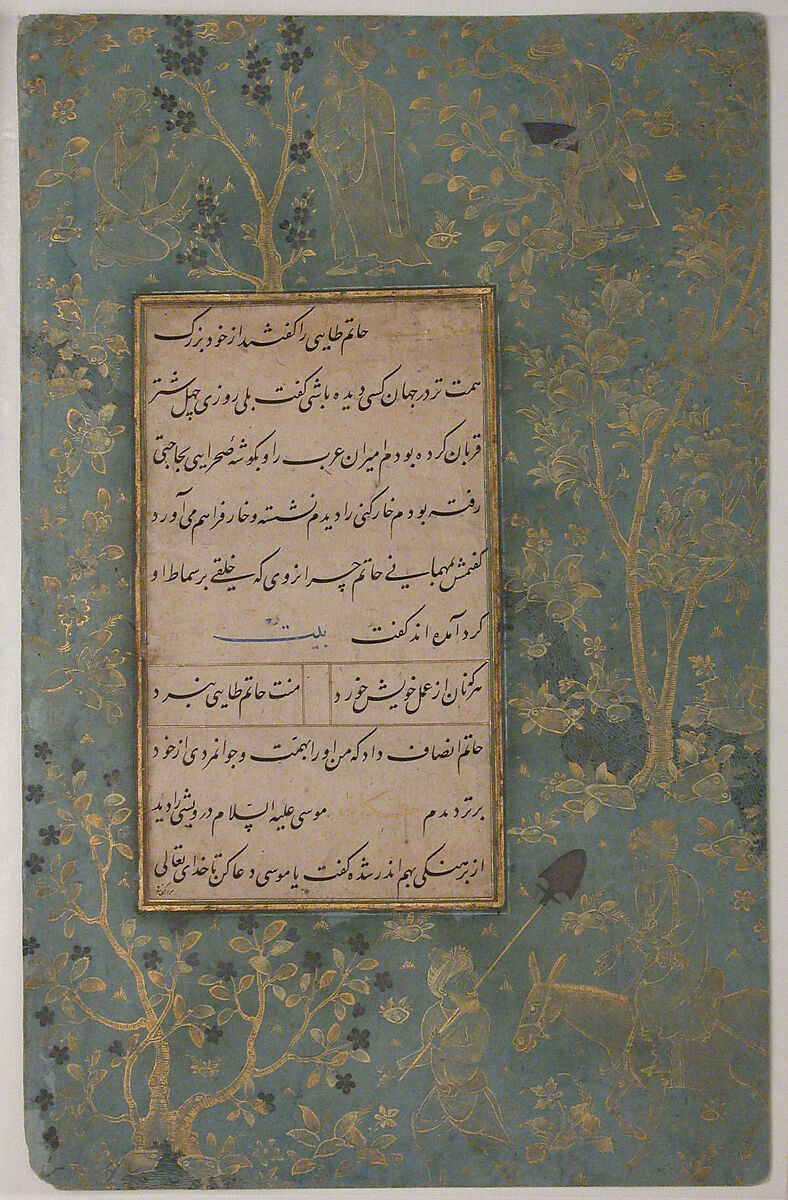 حاتم طایی را گفتند از خود بزرگ
همت تر در جهان کسی دیده باشی گفت بلی روزی چهل شتر
قربان کرده بودم امیران عرب را و بگوشهٔ صحرایی بحاجتی
رفته بودم خارکنی را دیدم نشسته و خار فراهم می آورد
گفتمش بمهمانی حاتم چرا نروی که خلقی بر سماط او
گرد آمده اند گفت بیت
هر که نان از عمل خویش خورد منت حاتم طایی نبرد
حاتم انصاف داد که من او را بهمت و جوانمردی از خود
برتر دیدم حکایت موسی علیه السلام درویشی را دید
از برهنگی بهم اندر شده گفت یا موسی دعا کن تا خدای تعالی